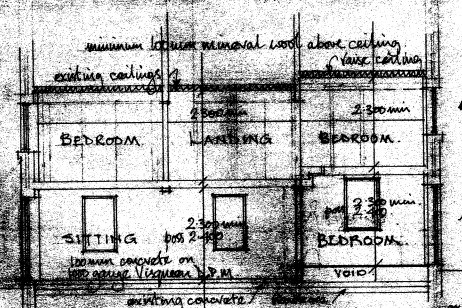 minimum 100mm mineral wool above ceiling
existing ceilings
raise ceiling
2·300 min
2·300 min
BEDROOM
LANDING
BEDROOM
2·300 min
2·300 min.
poss
SITTING
poss
BEDROOM
100mm concrete on
gauge Visqueen D.P.M
VOID
existing concrete